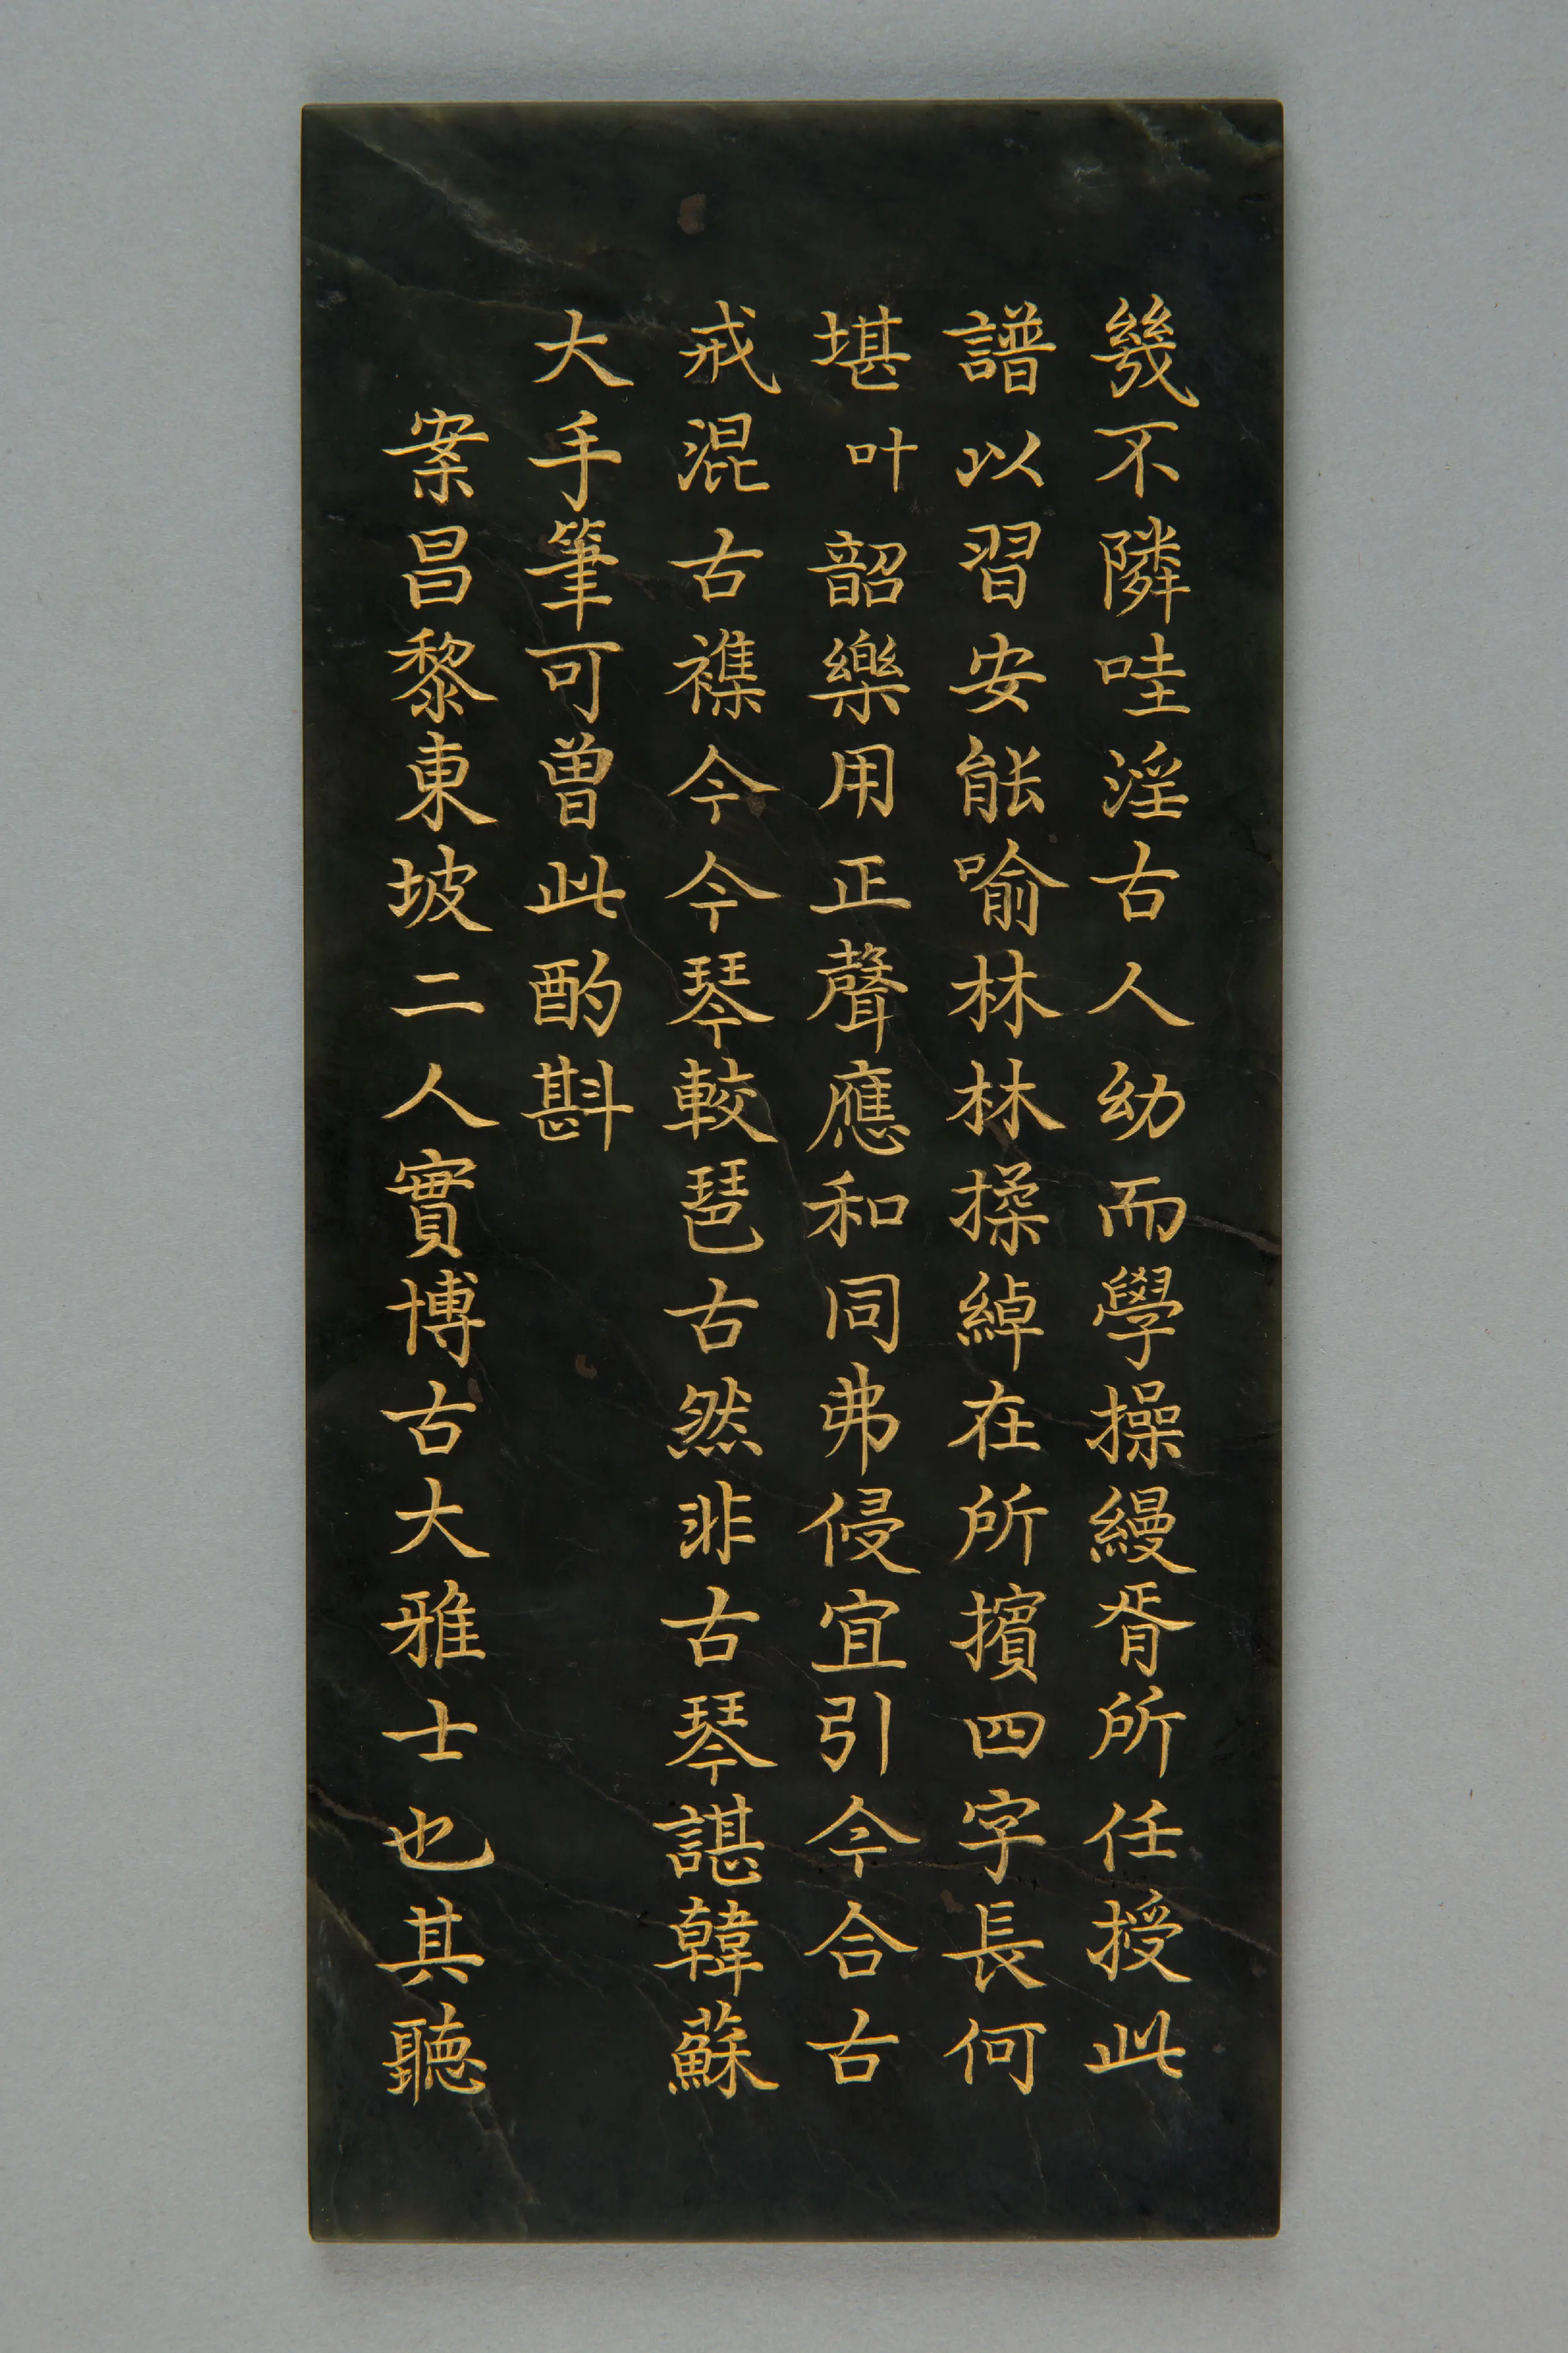 幾不隣哇淫古人幼而學操縵胥所任授此
譜以習安能喻林林揉綽在所擯四字長何
堪叶韶樂用正聲應和同弗侵宜引今合古
戒混古襍今今琴較琶古然非古琴諶韓蘇
大手筆可曾此酌斟
案昌黎東坡二人實博古大雅士也其聽